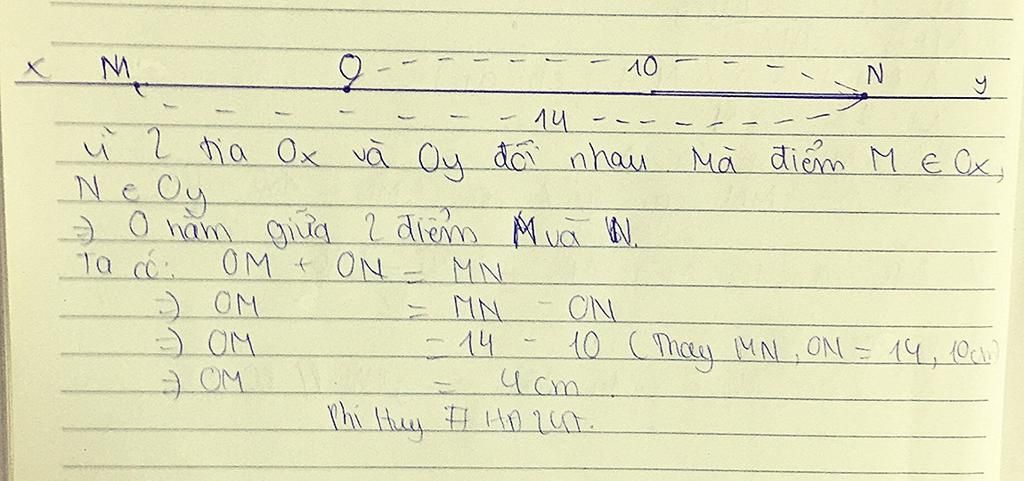 x M O 10 N y
14
Vì 2 tia Ox và Oy đối nhau Mà điểm M ∈ Ox,
N ∈ Oy
⇒ O nằm giữa 2 điểm M và N.
Ta có: OM + ON = MN
⇒ OM = MN - ON
⇒ OM = 14 - 10 (Thay MN, ON = 14, 10cm)
⇒ OM = 4cm
Phi Huy